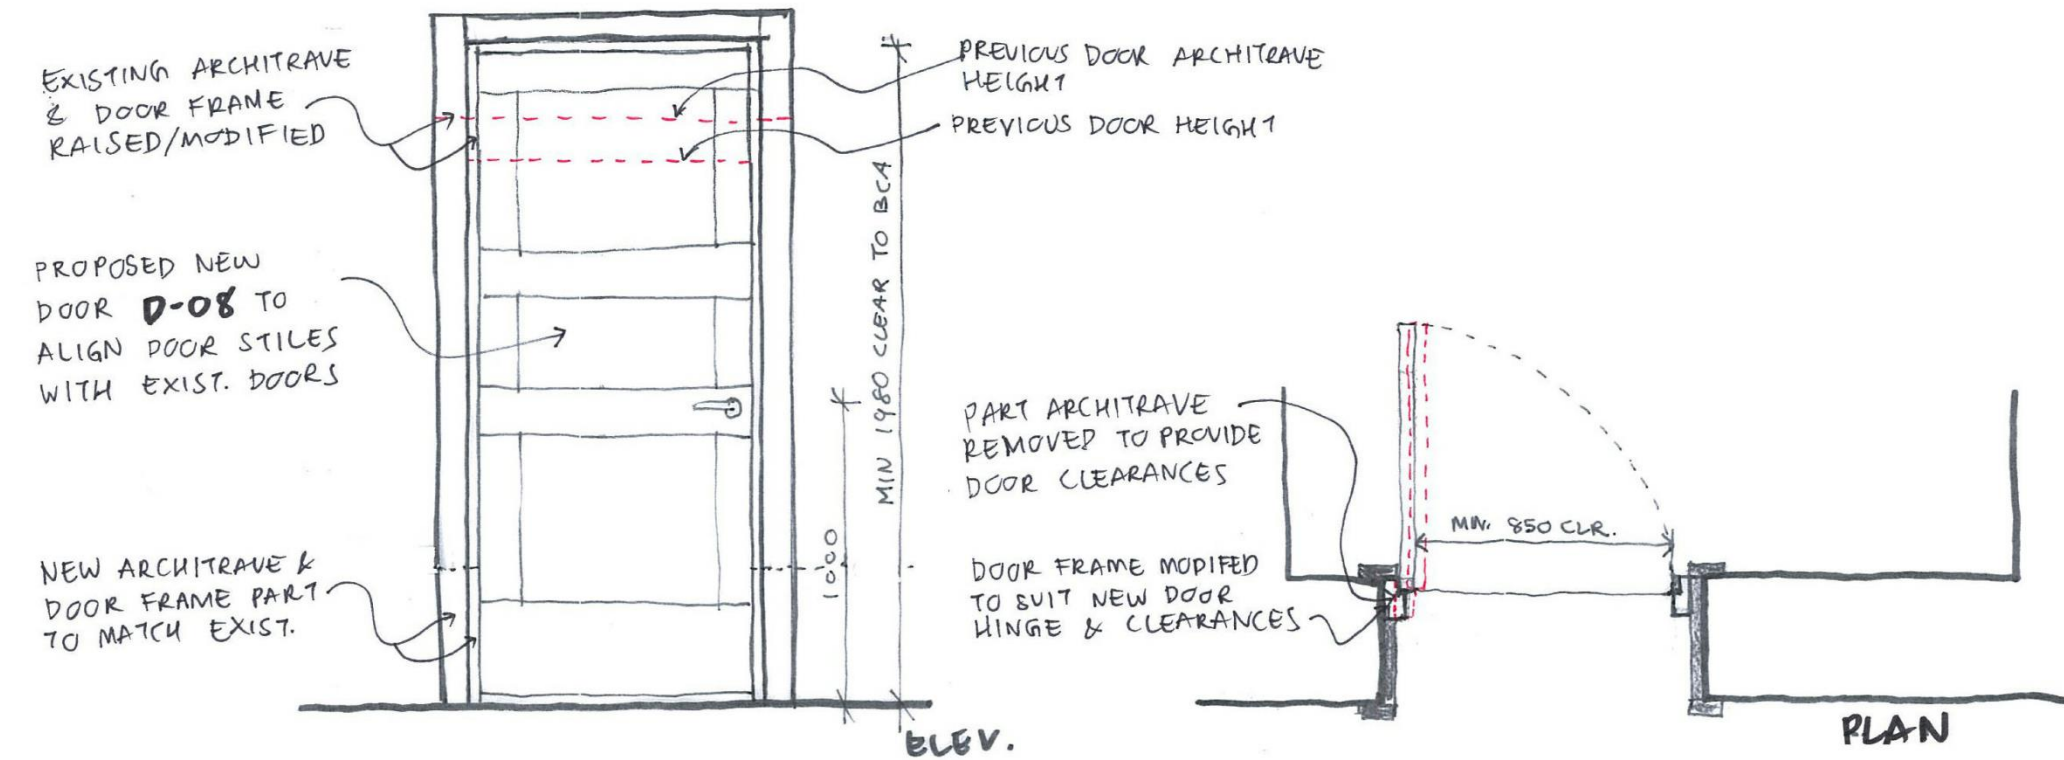 EXISTING ARCHITRAVE
& DOOR FRAME
RAISED/MODIFIED
PROPOSED NEW
DOOR D-08 TO
ALIGN DOOR STILES
WITH EXIST. DOORS
NEW ARCHITRAVE &
DOOR FRAME PART
TO MATCH EXIST.
PREVIOUS DOOR ARCHITRAVE
HEIGHT
PREVIOUS DOOR HEIGHT
MIN 1980 CLEAR TO BCA
1000
ELEV.
PART ARCHITRAVE
REMOVED TO PROVIDE
DOOR CLEARANCES
DOOR FRAME MODIFED
TO SUIT NEW DOOR
HINGE & CLEARANCES
MIN. 850 CLR.
PLAN